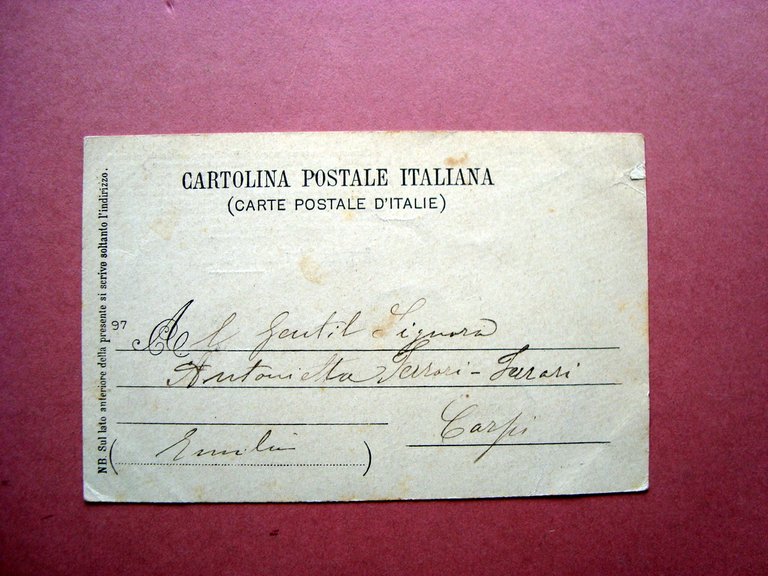 CARTOLINA POSTALE ITALIANA
(CARTE POSTALE D'ITALIE)
NB. Sul lato anteriore della presente si scrive soltanto l'indirizzo.
97
Al Gentil Signora
Antonietta Ferrari-Ferrari
Carpi
(Emilia)